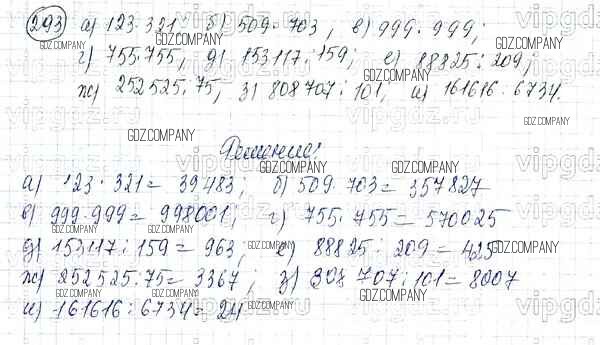 293 а) 123·321 б) 509·703, в) 999·999;
г) 755·755, д) 153117:159; е) 88825:209;
ж) 252525:75, з) 808707:101; и) 161616:6734.
Решение:
а) 123·321= 39483; б) 509·703= 357827
в) 999·999= 998001; г) 755·755=570025
д) 153117:159= 963, е) 88825:209=425
ж) 252525:75= 3367; з) 808707:101=8007
и) 161616:6734= 24